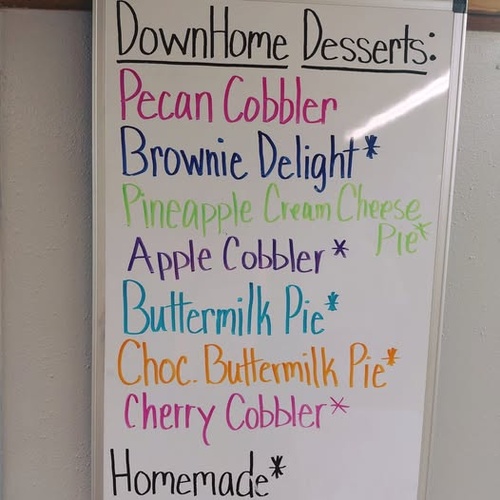 DownHome Desserts:
Pecan Cobbler
Brownie Delight*
Pineapple Cream Cheese
Pie*
Apple Cobbler*
Buttermilk Pie*
Choc. Buttermilk Pie*
Cherry Cobbler*
Homemade*